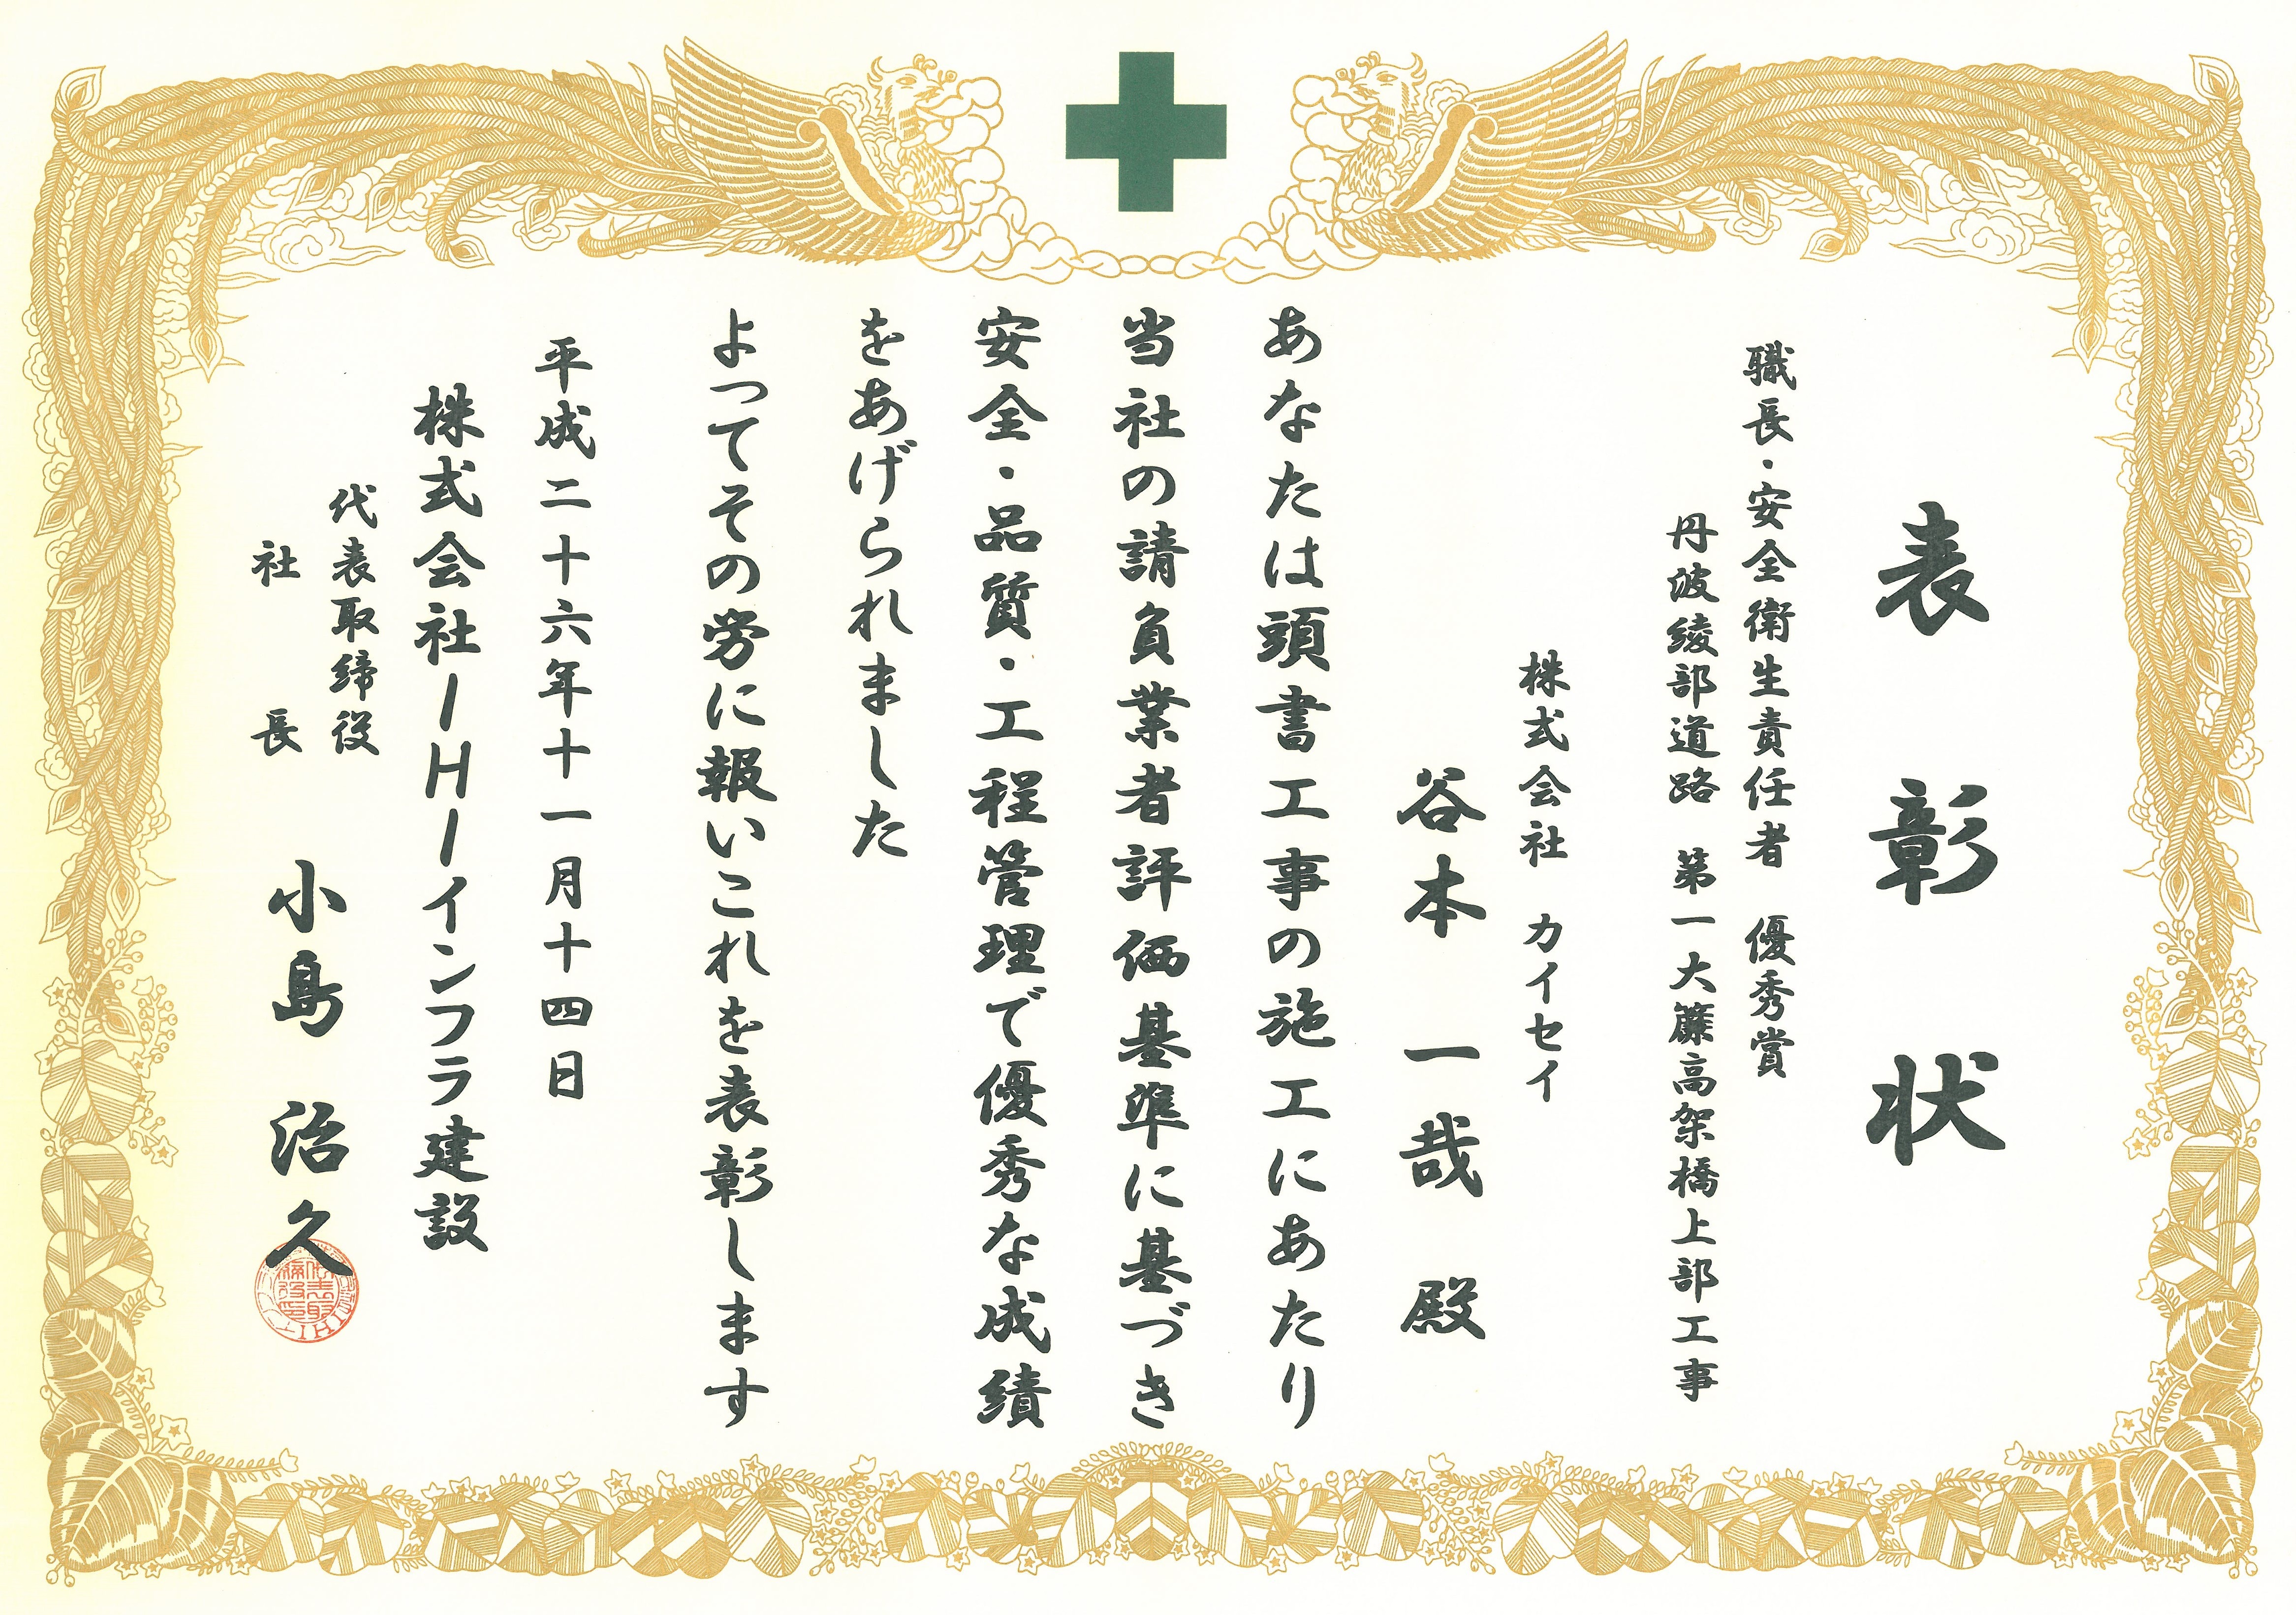 表彰状
職長・安全衛生責任者 優秀賞
丹波綾部道路 第一大簾高架橋上部工事
株式会社 カイセイ
谷本 一哉 殿
あなたは頭書工事の施工にあたり
当社の請負業者評価基準に基づき
安全・品質・工程管理で優秀な成績
をあげられました
よってその労に報いこれを表彰します
平成二十六年十一月十四日
株式会社IHIインフラ建設
代表取締役
社長 小島 治久